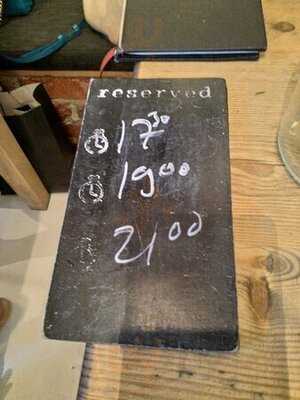 reserved
17³⁰
19⁰⁰
21⁰⁰